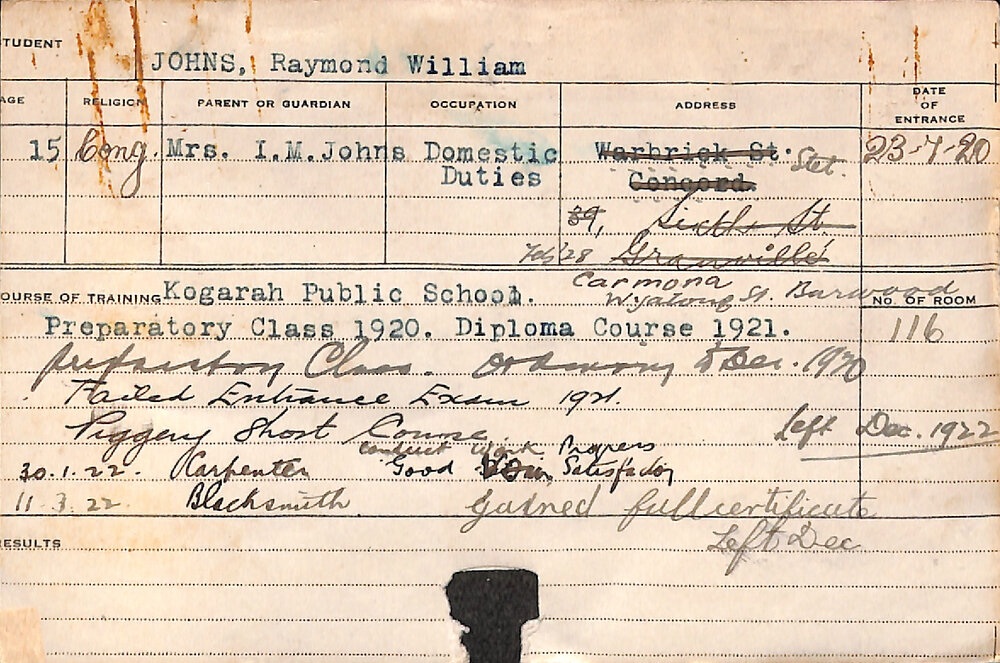 STUDENT
JOHNS, Raymond William
AGE RELIGION PARENT OR GUARDIAN OCCUPATION ADDRESS DATE OF ENTRANCE
15 Cong. Mrs. I.M.Johns Domestic Duties Warbrick St. Concord. Stet. 23-7-20
39, Sixth St
Feb/28 Granville
Carmona
Wyalong St. Burwood
COURSE OF TRAINING Kogarah Public School. NO. OF ROOM
Preparatory Class 1920. Diploma Course 1921. 116
Preparatory Class. Ordinary Dec. 1920
Failed Entrance Exam 1921.
Piggery Short Course. left Dec. 1922
Conduct Work Progress
30.1.22. Carpenter Good Satisfactory
11.3.22 Blacksmith. gained full certificate
Left Dec
RESULTS